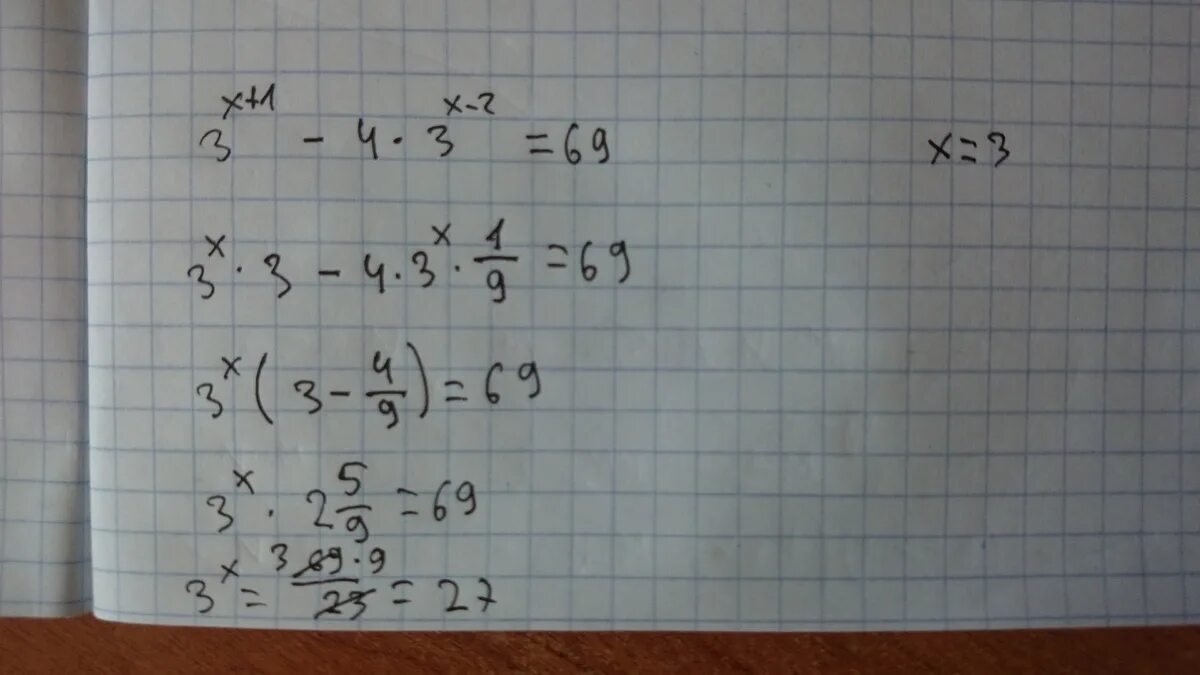 3^{x+1} - 4 · 3^{x-2} = 69
x = 3
3^x · 3 - 4 · 3^x · \frac{1}{9} = 69
3^x ( 3 - \frac{4}{9} ) = 69
3^x · 2 \frac{5}{9} = 69
3^x = \frac{^3 \cancel{69} · 9}{\cancel{23}} = 27